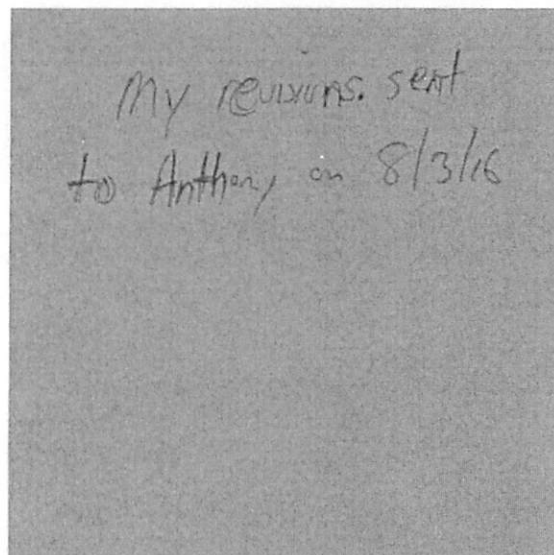 My revisions. sent
to Anthony on 8/3/16